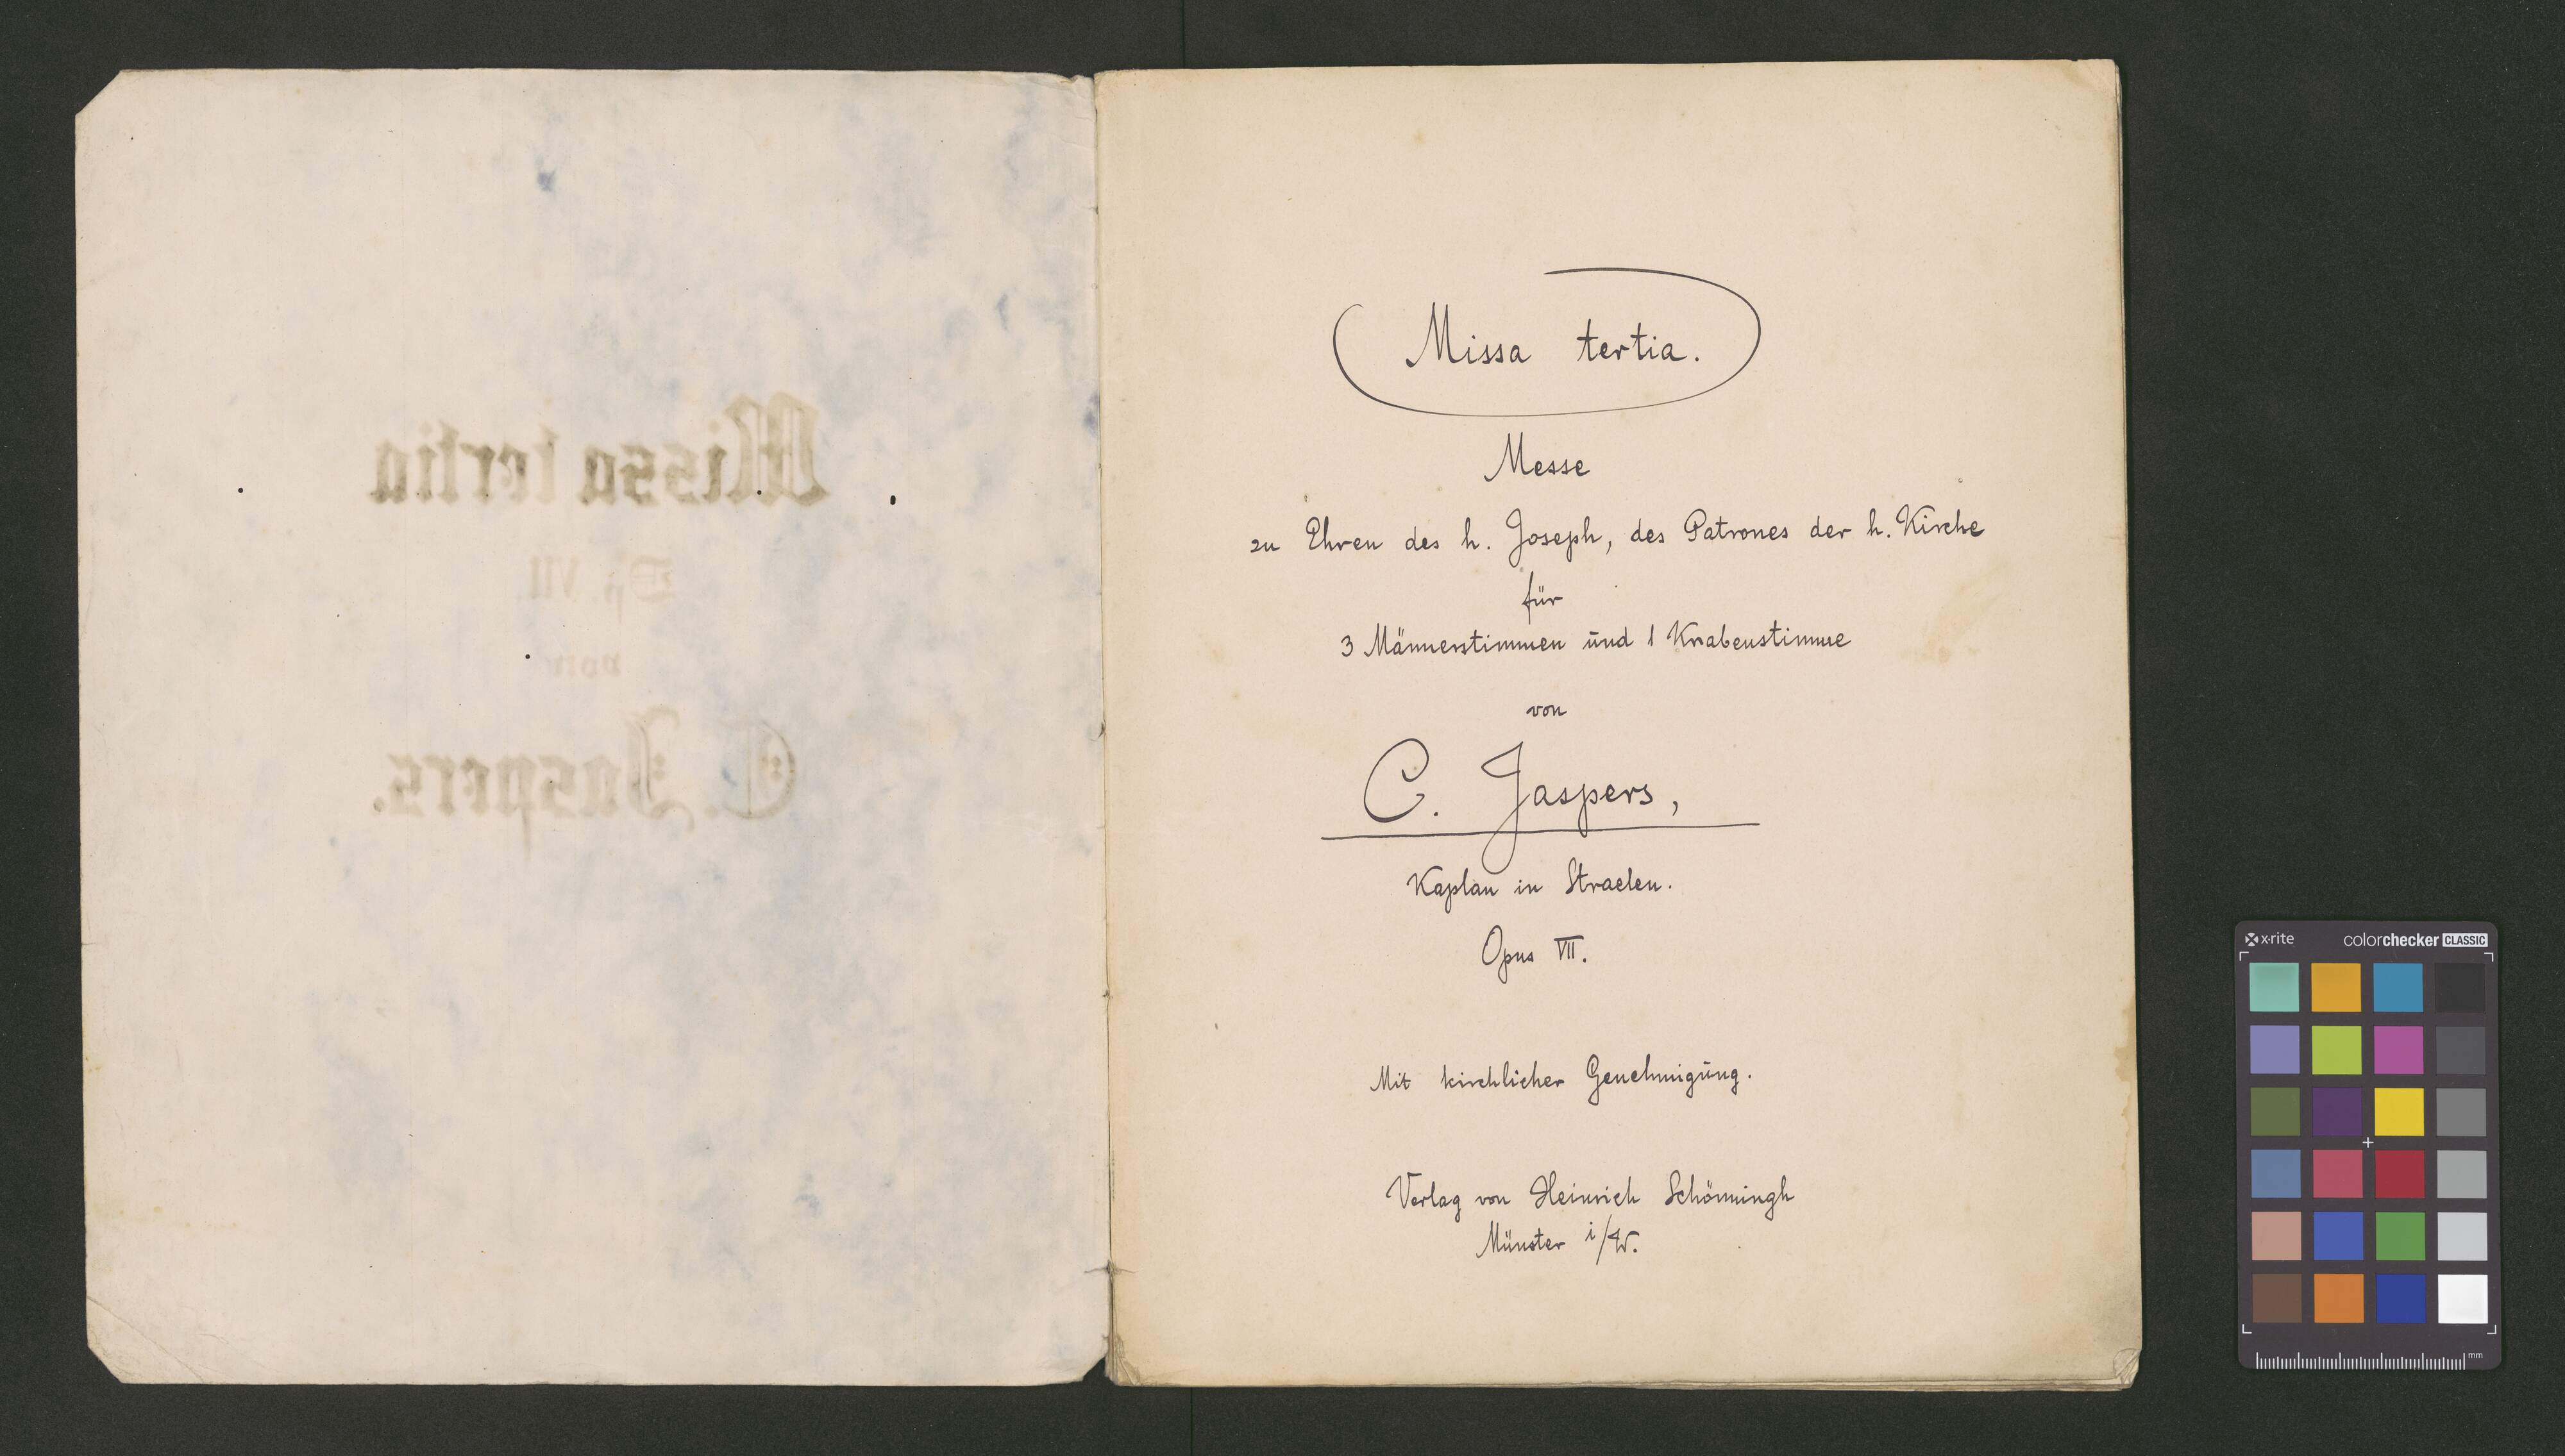 Missa tertia
Op. VII
von
C. Jaspers.
Missa tertia.
Messe
zu Ehren des h. Joseph, des Patrones der h. Kirche
für
3 Männerstimmen und 1 Knabenstimme
von
C. Jaspers,
Kaplan in Straelen.
Opus VII.
Mit kirchlicher Genehmigung.
Verlag von Heinrich Schönningh
Münster i/W.
x-rite colorchecker CLASSIC
mm